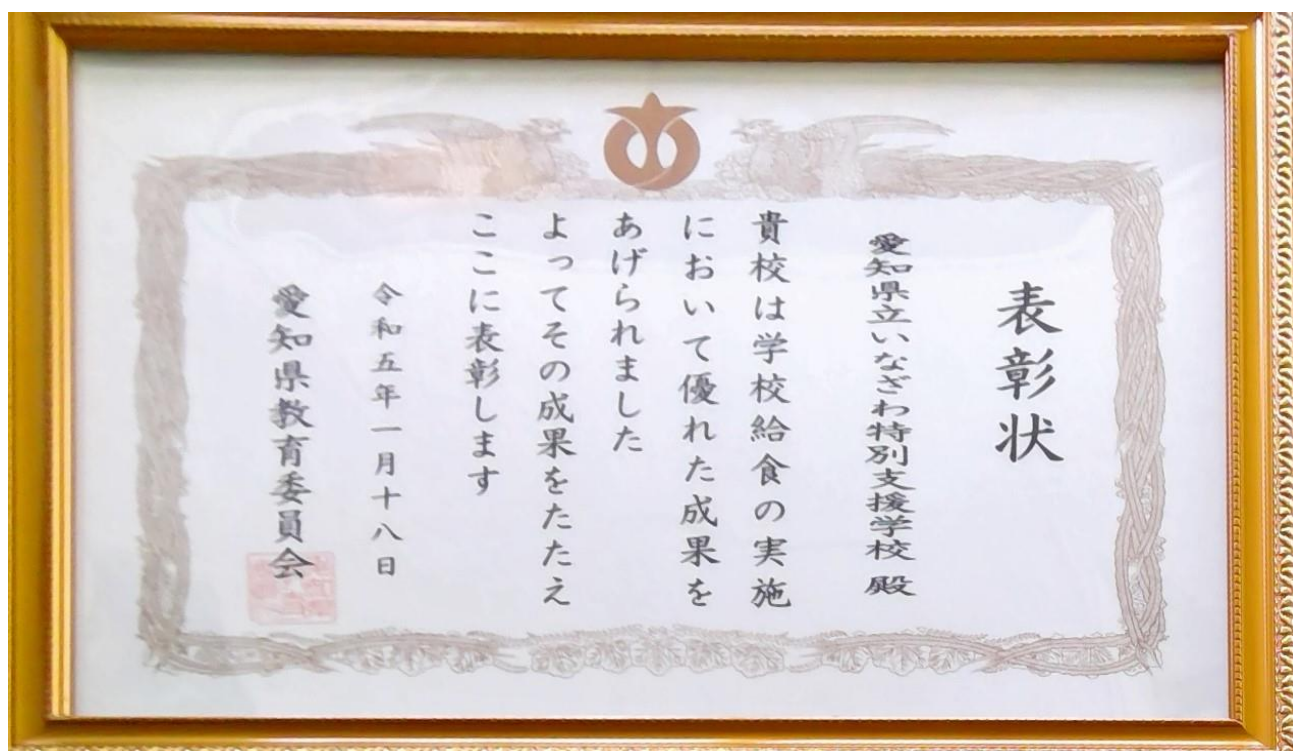 表彰状
愛知県立いなざわ特別支援学校 殿
貴校は学校給食の実施
において優れた成果を
あげられました
よってその成果をたたえ
ここに表彰します
令和五年一月十八日
愛知県教育委員会